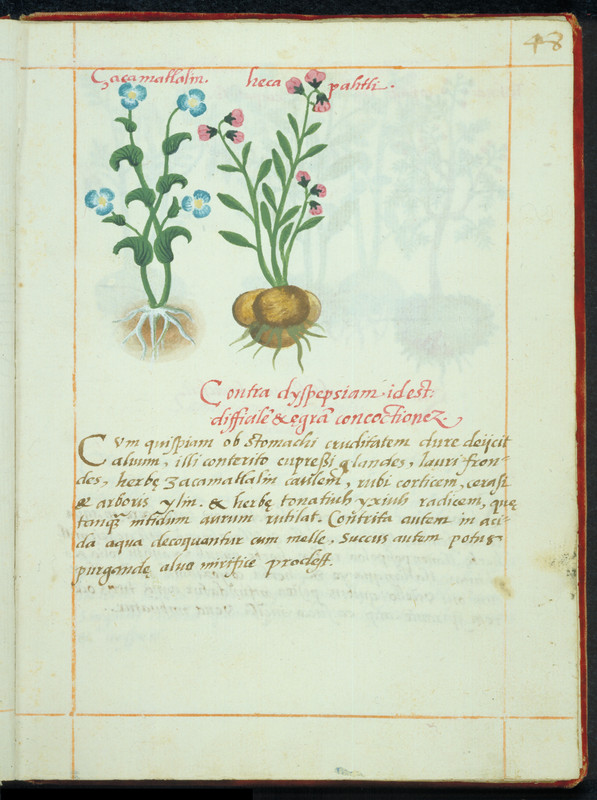 48
Çacamatlalin. heca pahtli.
Contra dyspepsiam idest:
difficilē & ęgrā concoctionez
Cum quispiam ob stomachi cruditatem dure deijcit
aluum, illi conterito cupressi glandes, lauri fron-
des, herbę Zacamatlalin caulem, rubi corticem, cerasi
& arboris ylin. & herbę tonatiuh yxiuh radicem, quę
tanq̃ nitidum aurum rutilat. Contrita autem in aci-
da aqua decoquantur cum melle. Succus autem potus
purgandę aluo mirifice prodest.